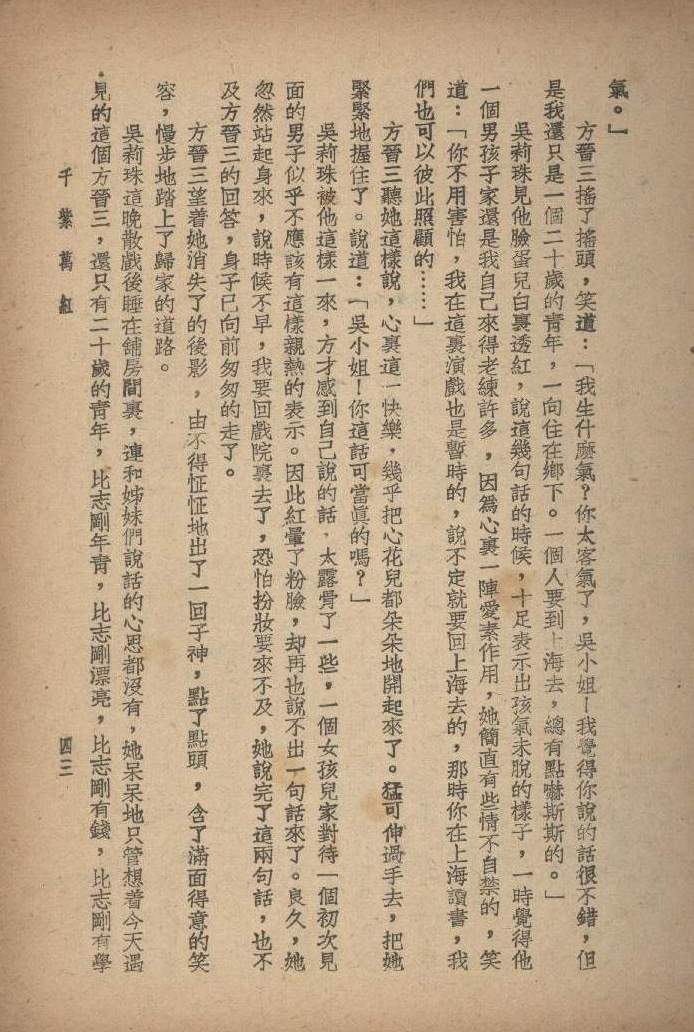 氣。」
方晉三搖了搖頭，笑道：「我生什麼氣？你太客氣了，吳小姐！我覺得你說的話很不錯，但
是我還只是一個二十歲的青年，一向住在鄉下。一個人要到上海去，總有點嚇斯斯的。」
吳莉珠見他臉蛋兒白裏透紅，說這幾句話的時候，十足表示出孩氣未脫的樣子，一時覺得他
一個男孩子家還是我自己來得老練許多，因爲心裏一陣愛素作用，她簡直有些情不自禁的，笑
道：「你不用害怕，我在這裏演戲也是暫時的，說不定就要回上海去的，那時你在上海讀書，我
們也可以彼此照顧的……」
方晉三聽她這樣說，心裏這一快樂，幾乎把心花兒都朵朵地開起來了。猛可伸過手去，把她
緊緊地握住了。說道：「吳小姐！你這話可當眞的嗎？」
吳莉珠被他這樣一來，方才感到自己說的話，太露骨了一些，一個女孩兒家對待一個初次見
面的男子似乎不應該有這樣親熱的表示。因此紅暈了粉臉，却再也說不出一句話來了。良久，她
忽然站起身來，說時候不早，我要回戲院裏去了，恐怕扮妝要來不及，她說完了這兩句話，也不
及方晉三的回答，身子已向前匆匆的走了。
方晉三望着她消失了的後影，由不得怔怔地出了一回子神，點了點頭，含了滿面得意的笑
容，慢步地踏上了歸家的道路。
吳莉珠這晚散戲後睡在舖房間裏，連和姊妹們說話的心思都沒有，她呆呆地只管想着今天遇
見的這個方晉三，還只有二十歲的靑年，比志剛年靑，比志剛漂亮，比志剛有錢，比志剛有學
千紫萬紅
四三